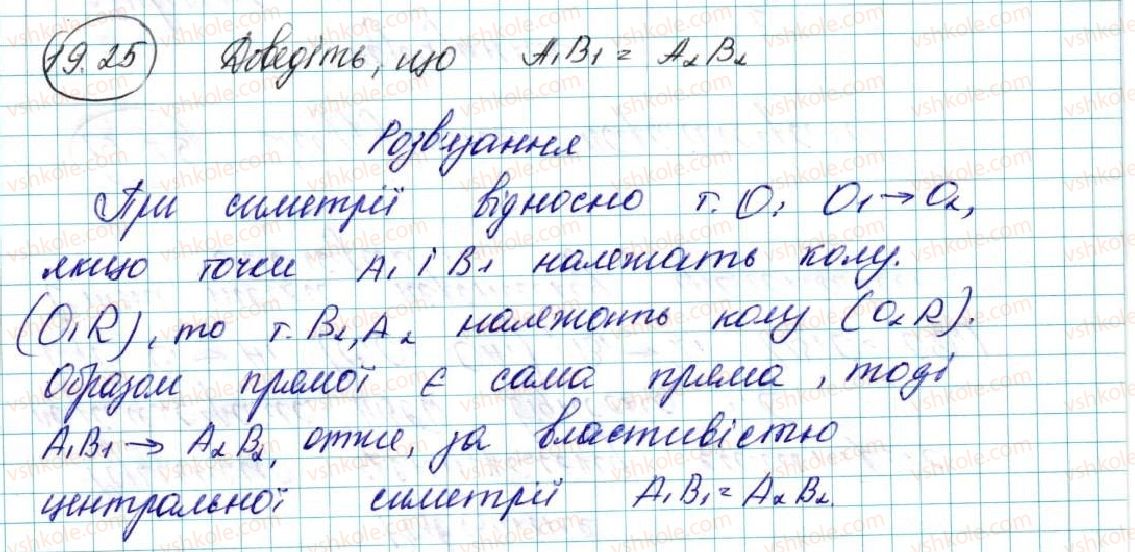 19.25 Доведіть, що A₁B₁ = A₂B₂
Розв'язання
При симетрії відносно т. O, O₁ → O₂,
якщо точки A₁ і B₁ належать колу.
(O₁R), то т. B₂, A₂ належать колу (O₂R).
Образом прямої є сама пряма, тоді
A₁B₁ → A₂B₂, отже, за властивістю
центральної симетрії A₁B₁ = A₂B₂.